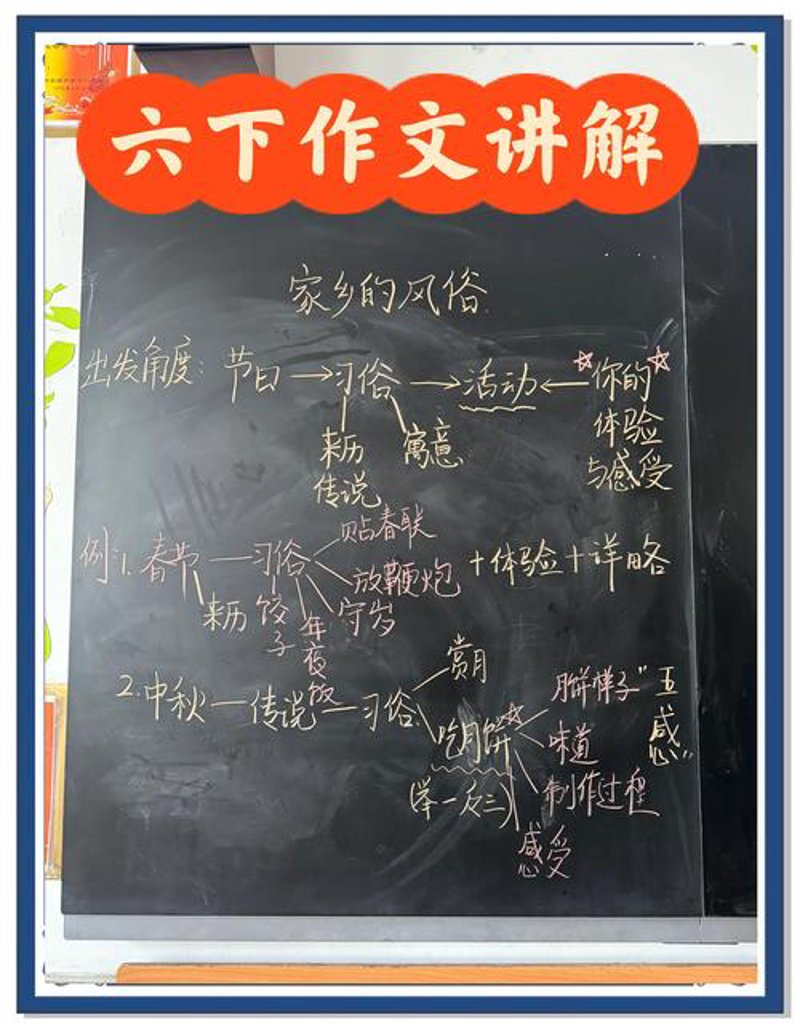 六下作文讲解
家乡的风俗
出发角度：节日→习俗→活动←☆你的☆
体验
与感受
来历
传说
寓意
例：1.春节—习俗
贴春联
放鞭炮
守岁
年夜饭
饺子
来历
+体验+详略
2.中秋—传说—习俗
赏月
吃月饼☆
(举一反三)
月饼样子
味道
制作过程
感受
"五感"